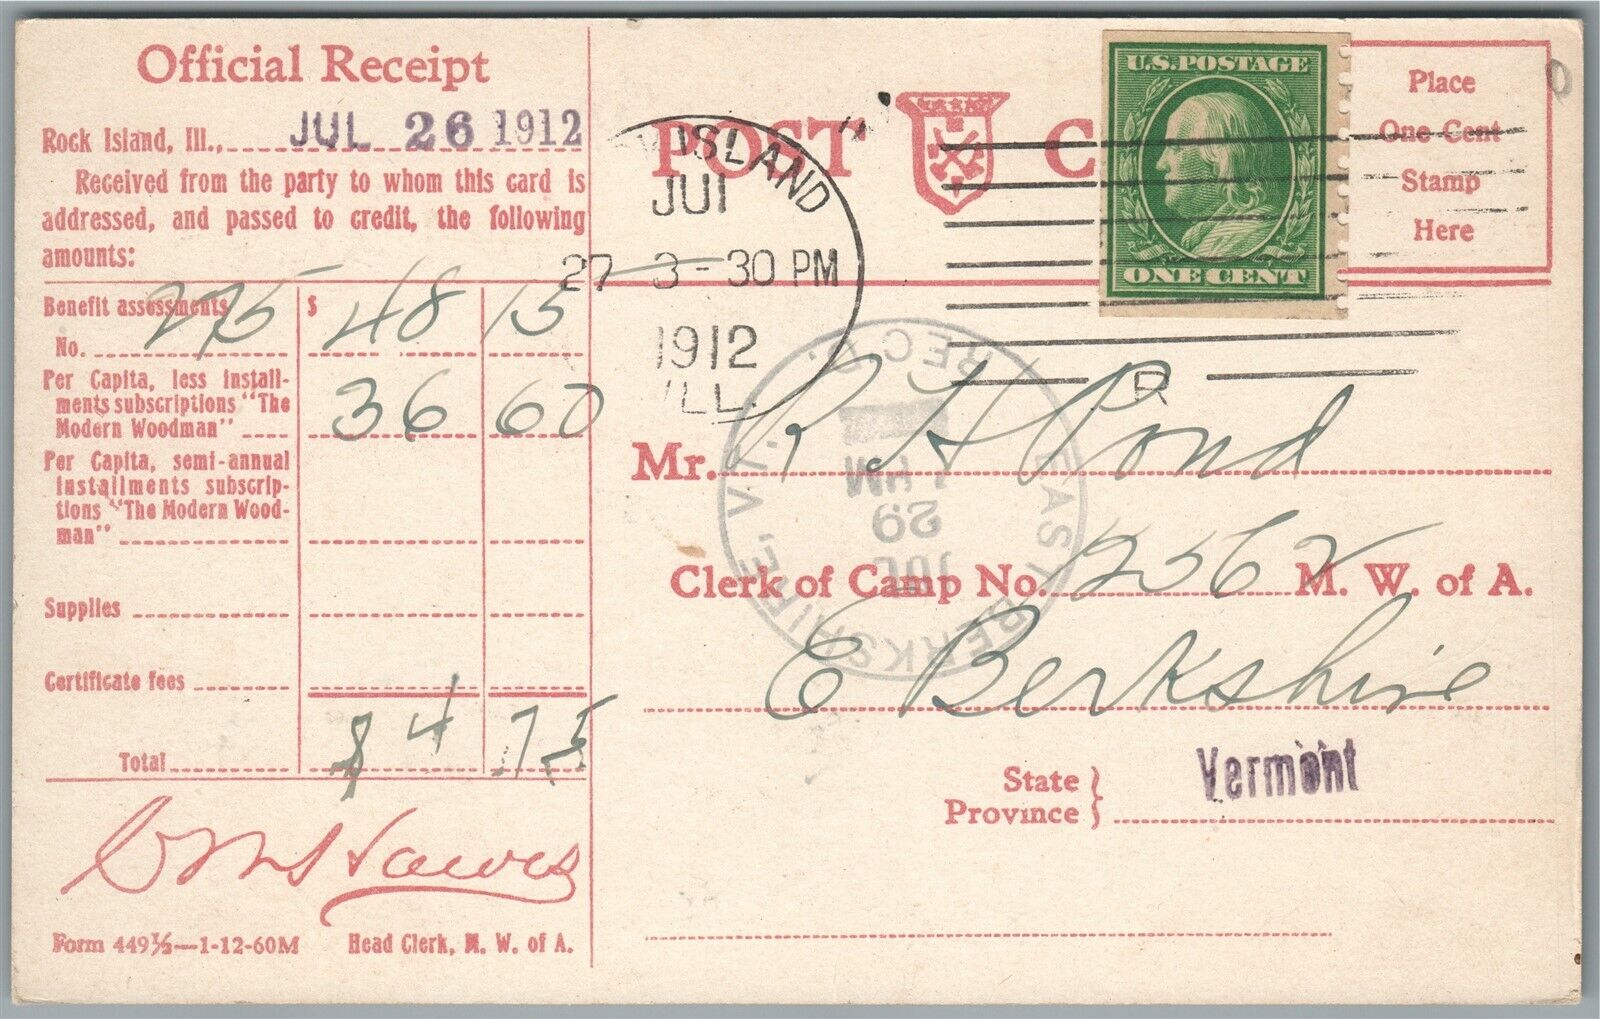 Official Receipt
Rock Island, Ill., JUL 26 1912
Received from the party to whom this card is
addressed, and passed to credit, the following
amounts:
Benefit assessments
No. 275 $ 48 15
Per Capita, less install-
ments subscriptions "The
Modern Woodman" 36 60
Per Capita, semi-annual
installments subscrip-
tions "The Modern Wood-
man"
Supplies
Certificate fees
Total 84 75
Form 449½—1-12-60M Head Clerk, M. W. of A.
POST C
ISLAND
JUL
27 3-30 PM
1912
ILL.
U.S. POSTAGE
ONE CENT
Place
One Cent
Stamp
Here
R
Mr. R H Pond
Clerk of Camp No. 12562 M. W. of A.
E Berkshire
State
Province
Vermont
EAST BERKSHIRE, VT. REC'D.
JUL
29
AM